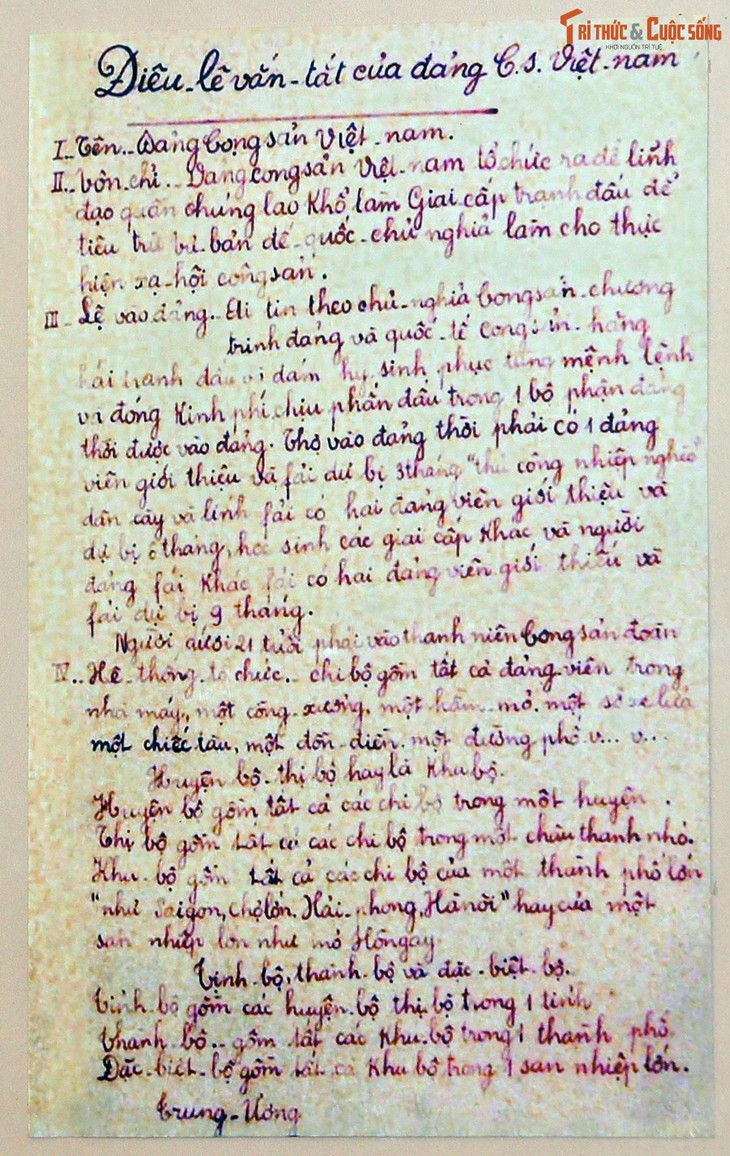 TRI THỨC & CUỘC SỐNG
KHƠI NGUỒN TRI TUỆ
Điều-lệ vắn-tắt của đảng C.S. Việt-nam
I.- Tên.- Đảng Cộng sản Việt-nam.
II.- Tôn chỉ.- Đảng cộng sản Việt-nam tổ chức ra để lĩnh
đạo quần chúng lao khổ làm Giai cấp tranh đấu để
tiêu trừ tư-bản đế-quốc-chủ nghĩa làm cho thực
hiện xã-hội cộng sản.
III- Lệ vào đảng.- Ai tin theo chủ-nghĩa Cộng sản-chương
trình đảng và quốc-tế cộng sản-hăng
hái tranh đấu và dám hy sinh phục tùng mệnh lệnh
và đóng Kinh phí, chịu phấn đấu trong 1 bộ phận đảng
thời được vào đảng. Thợ vào đảng thời phải có 1 đảng
viên giới thiệu và fải dự bị 3 tháng "thủ công nhiệp nghèo"
dân cày và lính fải có hai đảng viên giới thiệu và
dự bị 6 tháng, học sinh các giai cấp khác và người
đảng fái khác fải có hai đảng viên giới thiệu và
fải dự bị 9 tháng.
Người dưới 21 tuổi phải vào thanh niên Cộng sản đoàn
IV.- Hệ-thống-tổ chức.- chi bộ gồm tất cả đảng-viên trong
nhà máy, một công-xưởng, một hầm-mỏ, một sở xe lửa
một chiếc tàu, một đồn-điền, một đường phố v... v...
Huyện bộ-thị bộ hay là Khu bộ.
Huyện bộ gồm tất cả các chi bộ trong một huyện.
Thị bộ gồm tất cả các chi bộ trong một châu thành nhỏ.
Khu-bộ gồm tất cả các chi bộ của một thành phố lớn
"như Saigon, chợ lớn, Hải-phong, Hà nội" hay của một
sản nhiệp lớn như mỏ Hòngay.
Tỉnh-bộ, thành-bộ và đặc-biệt-bộ.
Tỉnh-bộ gồm các huyện-bộ thị bộ trong 1 tỉnh
Thành bộ.- gồm tất các Khu-bộ trong 1 thành phố
Đặc-biệt-bộ gồm tất cả Khu bộ trong 1 sản nhiệp lớn.
Trung-Ương